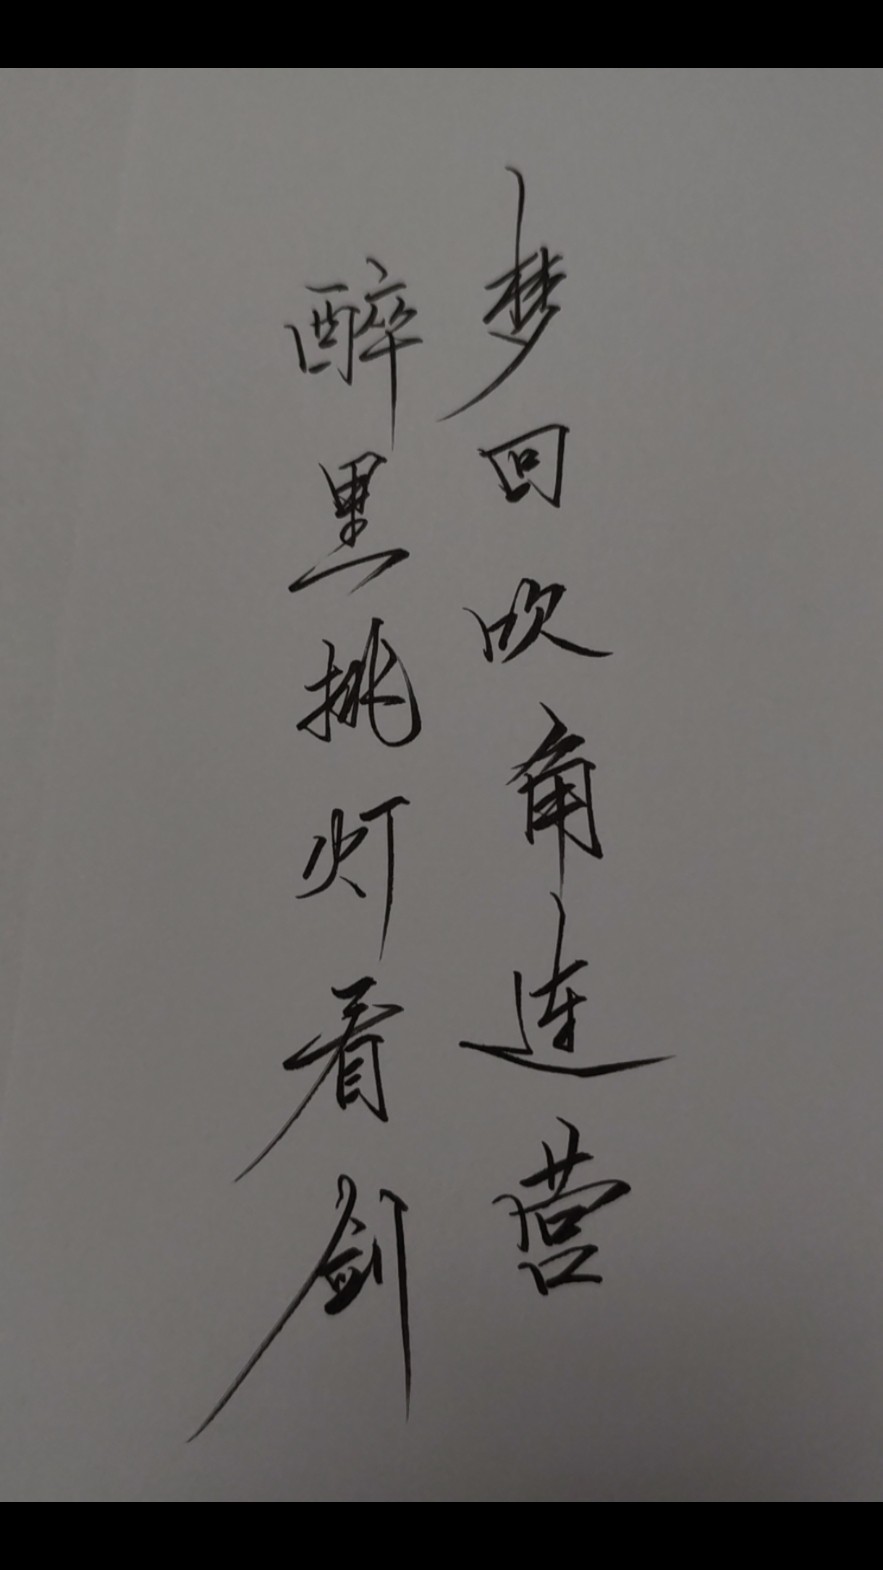 醉里挑灯看剑
梦回吹角连营